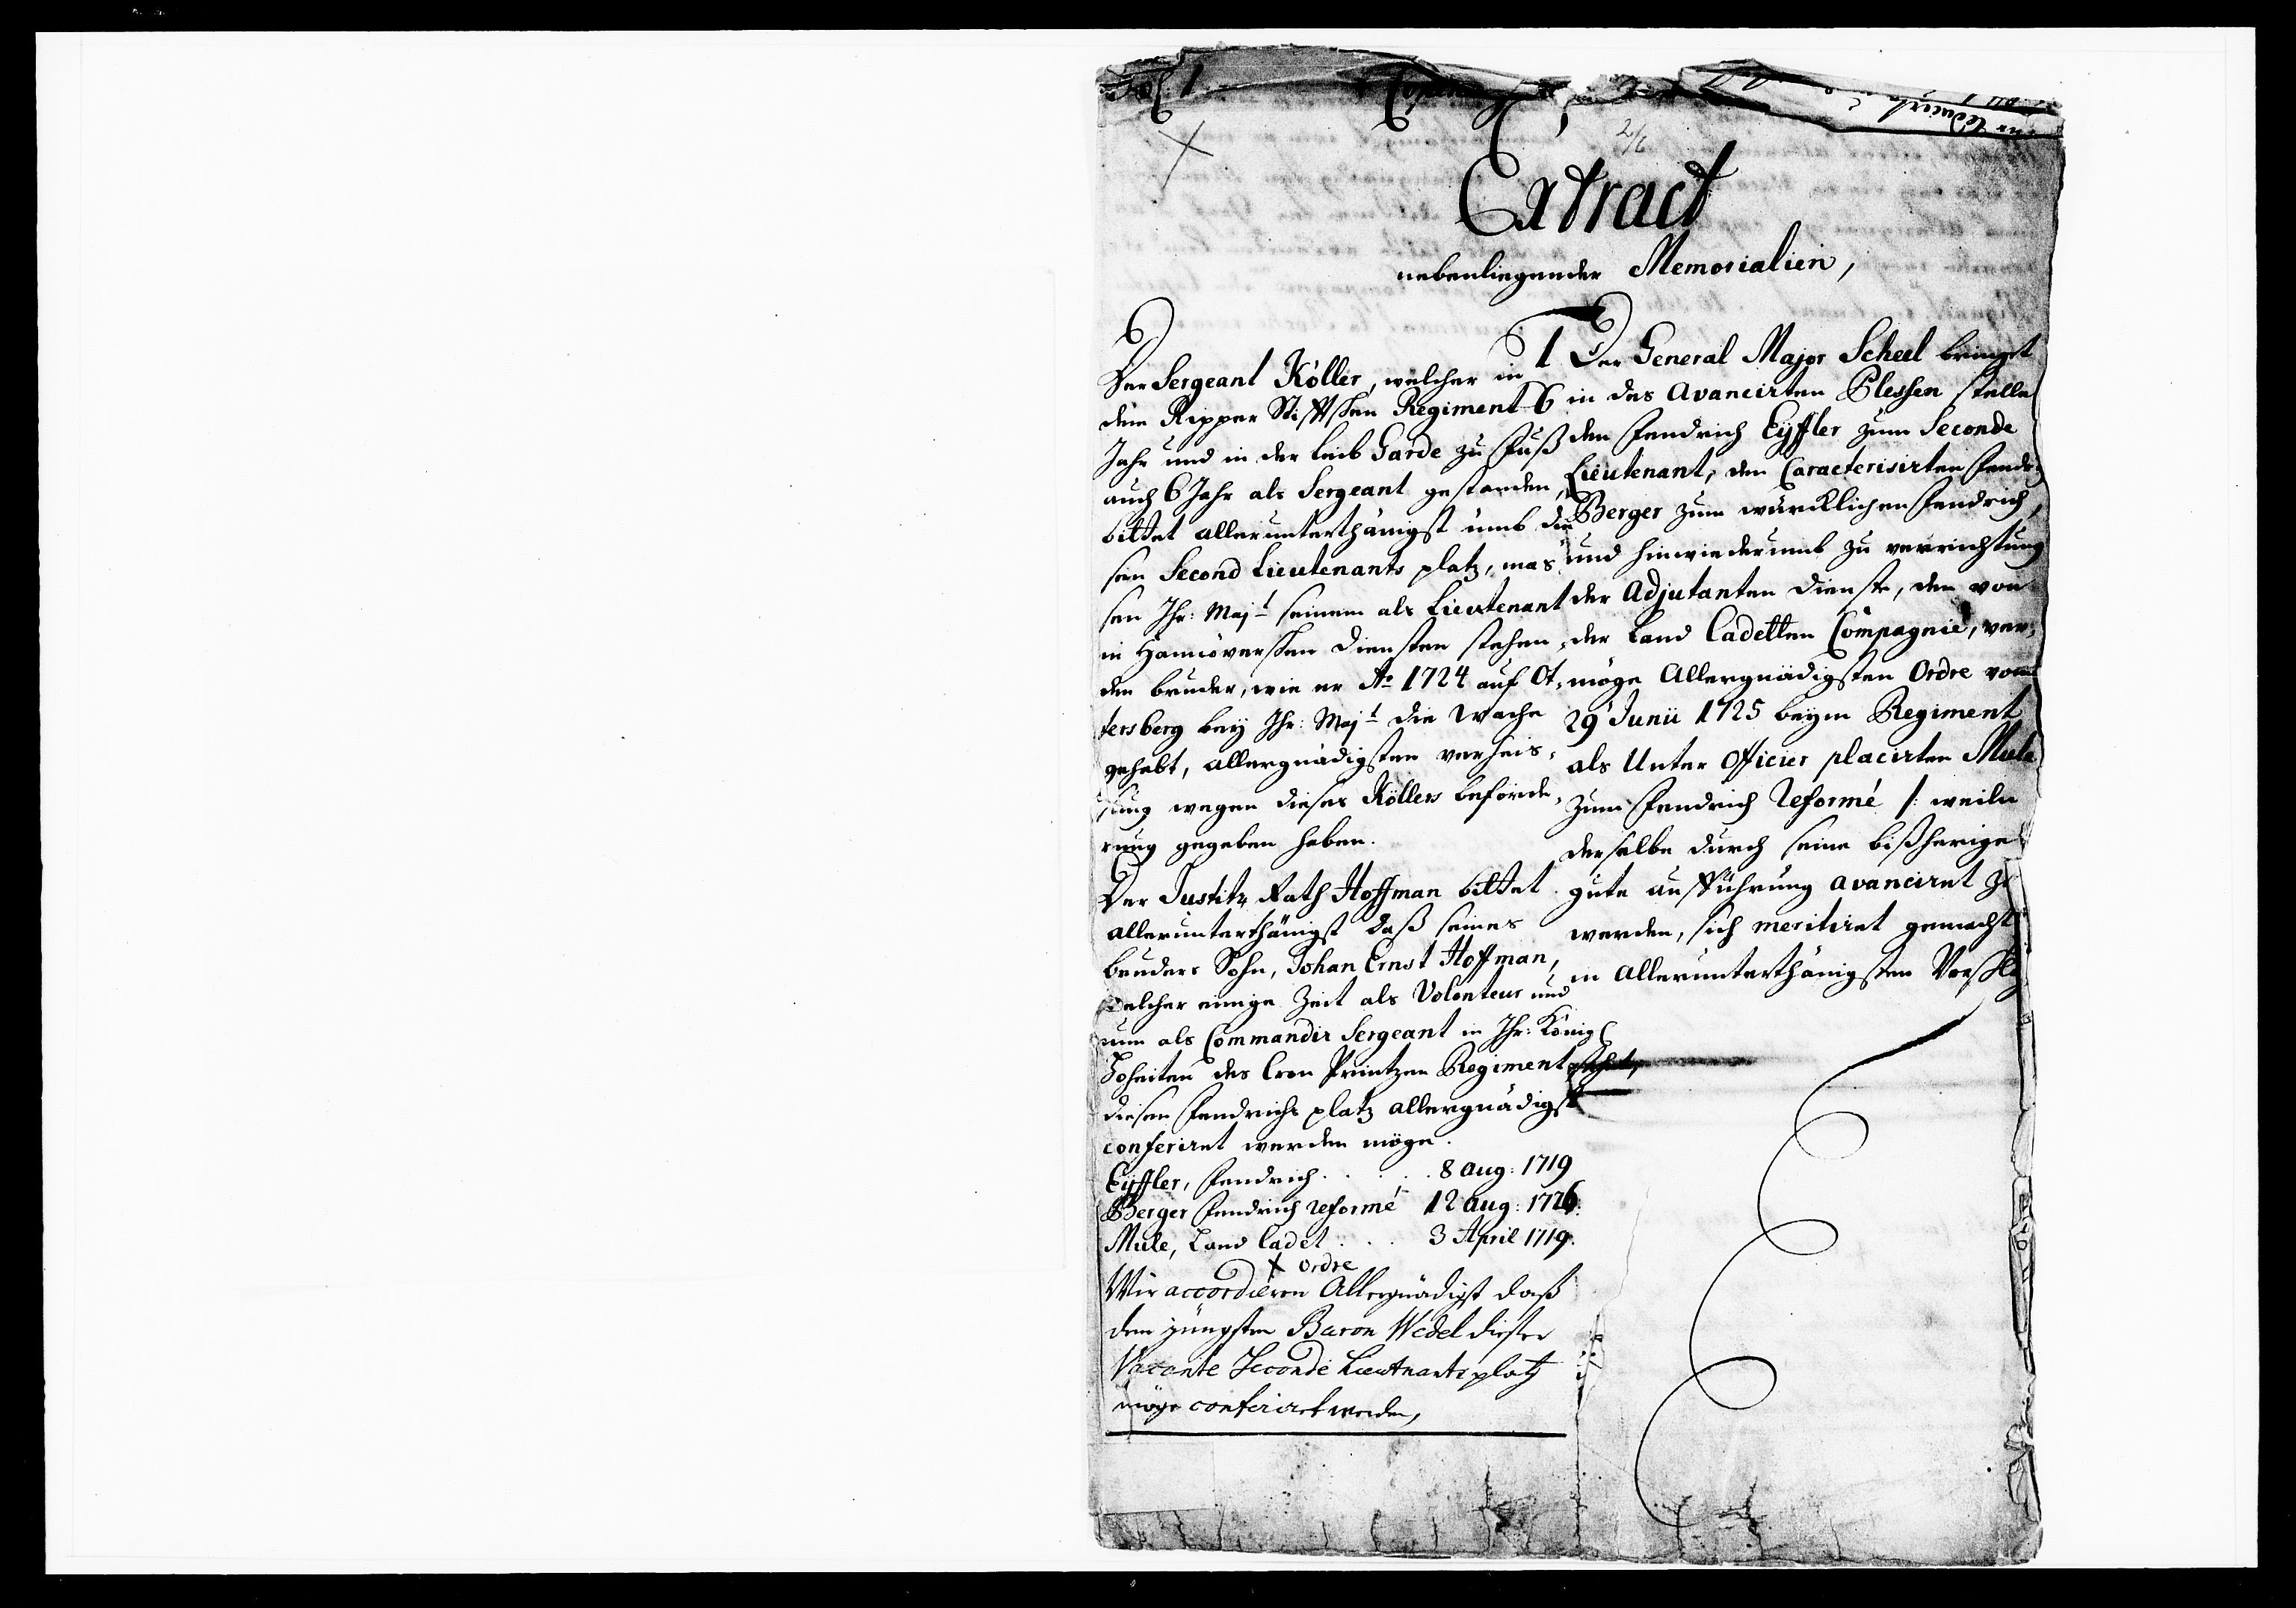 Extract
nebenliegender Memorialien,
Der Sergeant Köller, welcher in
dem Ripper Stifftschen Regiment 6
Jahr und in der Leib Garde zu Fuß
auch 6 Jahr als Sergeant gestanden,
bittet allerunterthänigst umb die-
sen Second Lieutenants platz, mas-
sen Ihr: Majt. seinem als Lieutenant
in Hannöverschen Diensten stehen-
den bruder, wie er Ao 1724 auf Ot-
tersberg bey Ihr: Majt. die Wache
gehabt, allergnädigsten verheis-
sung wegen dieses Köllers beförde-
rung gegeben haben.
Der Justitz Rath Hoffman bittet
allerunterthänigst daß seines
bruders Sohn, Johan Ernst Hoffman,
welcher einige Zeit als Volonteur und
nun als Commandir Sergeant in Ihr: Königl
Hoheiten des Cron Printzen Regiment stehet,
diesen Fendrichs platz allergnädigst
conferiret werden möge.
Eyffler, Fendrich . . . . 8 Aug: 1719
Berger Fendrich reformé 12 Aug: 1726.
Mule, Land Cadet . . . 3 April 1719.
X Ordre
Wir accordieren Allergnädigst daß
dem jüngsten Baron Wedel dieser
Vacante Seconde Lieutnants platz
möge conferiret werden,
1 Der General Major Scheel bringet
in des Avancirten Plessen stelle
den Fendrich Eyffler zum Seconde
Lieutenant, den Caracterisirten Fendr:
Berger zum würcklichen Fendrich,
und hinwiederumb zu verrichtung
der Adjutanten Dienste, den von
der Land Cadetten Compagnie, ver-
möge Allergnädigsten Ordre vom
29 Junii 1725 beym Regiment
als Unter Officier placirten Mule
zum Fendrich Reformé /: weiln
derselbe durch seine bißherige
gute aufführung avanciret zu
werden, sich meritiret gemacht
in Allerunterthänigsten Vorschlag